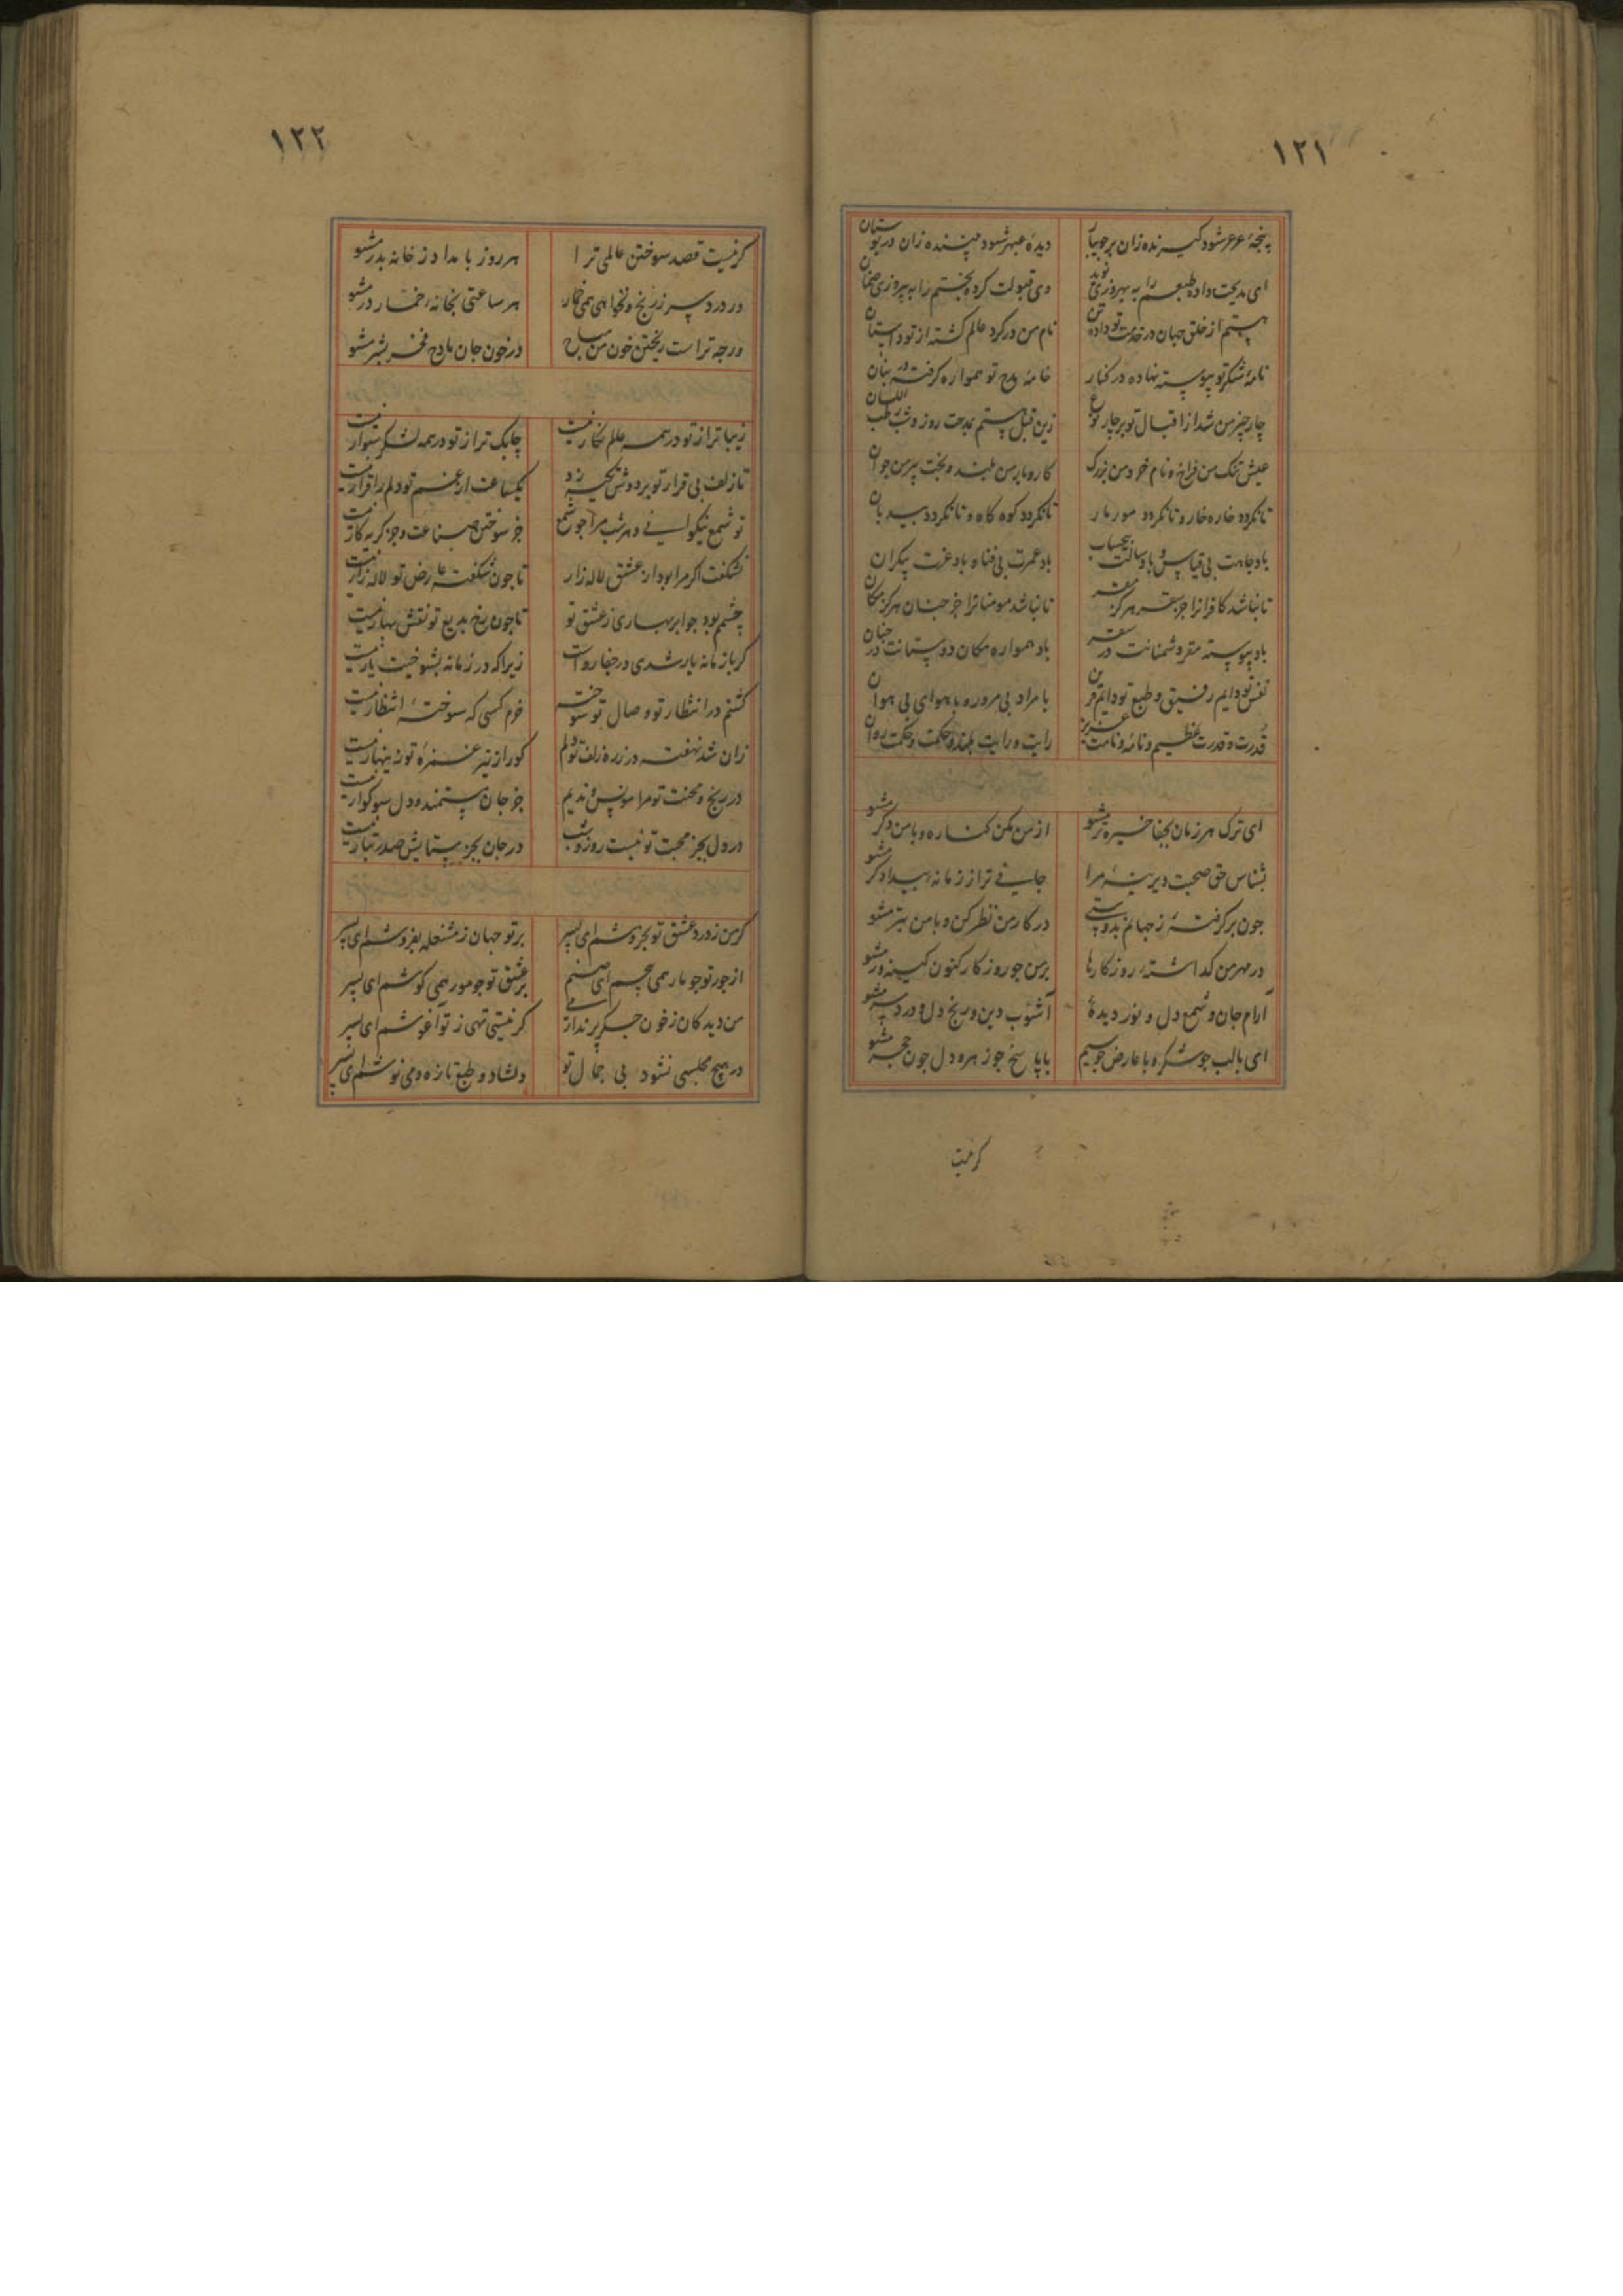 ۱۲۱
پنجهٔ عرعر شود گیرنده زان بر جویبار دیدهٔ عبهر شود بیننده زان در بوستان
ای مدیحت داده طبعم را به بهروزی نوید وی قبولت کرده بختم را به پیروزی ضمان
هستم از خلق جهان در خدمت تو داده تن نام من در گرد عالم گشته از تو داستان
نامهٔ شکر تو پیوسته نهاده در کنار خامهٔ مدح تو همواره گرفته در بنان
چار چیز من شد از اقبال تو بر چار نوع زین قبل هستم بمدحت روز و شب رطب اللسان
عیش تنک من فراخ و نام خرد من بزرگ کار و بار من بلند و بخت پیر من جوان
تا نگردد خاره خار و تا نگردد مور مار تا نگردد کوه کاه و تا نگردد بید بان
باد جاهت بی قیاس و باد سالت بیحساب باد عمرت بی فنا و باد عزت بیکران
تا نباشد کافرانرا جز سقر هرگز مقر تا نباشد مومنانرا جز جنان هرگز مکان
باد پیوسته مقر دشمنانت در سقر باد همواره مکان دوستانت در جنان
نفس تو دایم رفیق و طبع تو دایم قرین با مراد بی مرور و با هوای بی هوان
قدرت و قدرت عظیم و نامه و نامت عزیز رایت و رایت بلند و حکمت و حکمت روان
ای ترک هر زمان بجفا خیره تر مشو از من مکن کناره و با من دگر مشو
بشناس حق صحبت دیرینهٔ مرا جافی تر از زمانهٔ بیدادگر مشو
چون برگرفتهٔ ز جهانم بدوستی در کار من نظر کن و با من بتر مشو
در مهر من گذاشتهٔ روزگارها بر من چو روزگار کنون کینه ور مشو
آرام جان و شمع دل و نور دیدهٔ آشوب دین و رنج دل و درد سر مشو
ای با لب چو شکر و با عارض چو سیم با پاسخ چو زهر و دل چون حجر مشو
گر نیست
۱۲۲
گر نیست قصد سوختن عالمی ترا هر روز بامداد ز خانه بدر مشو
ور درد سر ز رنج و نخواهی همی خمار هر ساعتی بخانهٔ خمار در مشو
ورچه تراست ریختن خون من مباح در خون جان مادح فخر بشر مشو
زیباتر از تو در همه عالم نگار نیست چابک تر از تو در همه لشکر سوار نیست
تا زلف بی قرار تو بر دوش تکیه زد یکساعت از غم تو دلم را قرار نیست
تو شمع نیکوانی و هر شب مرا چو شمع جز سوختن صناعت و جز گریه کار نیست
نشکفت اگر مرا بود از عشق لاله زار تا چون شکفته عارض تو لاله زار نیست
چشمم بود چو ابر بهاری ز عشق تو تا چون رخ بدیع تو نقش بهار نیست
گر با زمانه یار شدی در جفا رواست زیرا که در زمانه بشوخیت یار نیست
گشتم در انتظار تو و صال تو سوخته خرم کسی که سوختهٔ انتظار نیست
زان شد نهفته در زره زلف تو دلم کو را ز تیر غمزهٔ تو زینهار نیست
در رنج و محنت تو مرا مونس و ندیم جز جان مستمند و دل سوگوار نیست
در دل بجز محبت تو نیست روز و شب در جان بجز ستایش صدر تبار نیست
گر من ز درد عشق تو بخروشم ای پسر بر تو جهان ز مشغله بفروشم ای پسر
از جور تو چو مار همی پیچم ای صنم بر عشق تو چو مور همی کوشم ای پسر
من دیدکان ز خون جگر پر ندارمی گر نیستی تهی ز تو آغوشم ای پسر
در هیچ مجلسی نشود بی جمال تو دلشاد و طبع تازه و می نوشم ای پسر